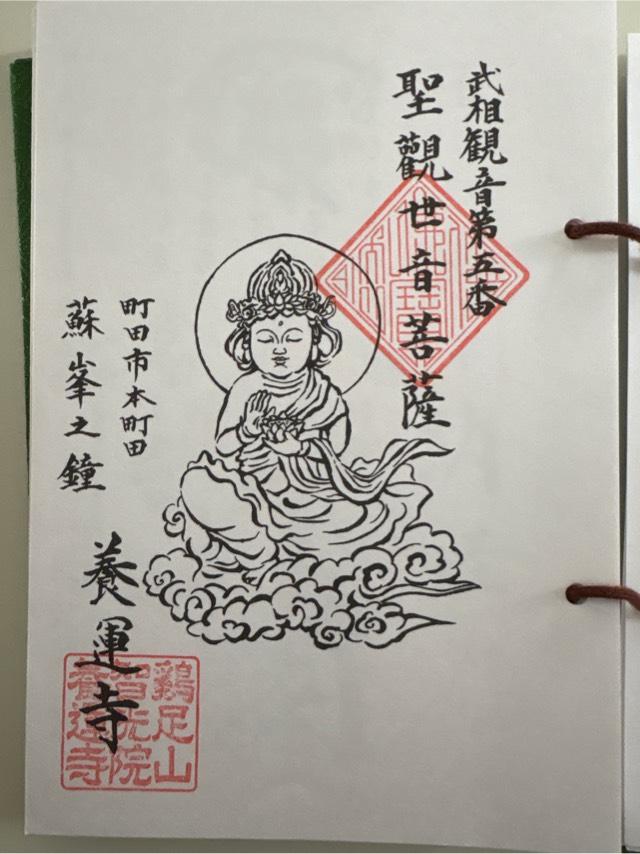 武相観音第五番
聖觀世音菩薩
町田市本町田
蘇峯之鐘
養運寺
鷄足山
智光院
養運寺